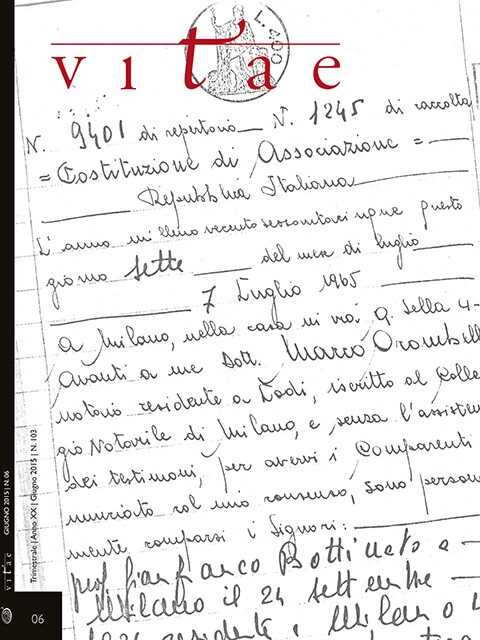 L. 400
vitae
N. 9401 di repertorio — N. 1245 di raccolta
= Costituzione di Associazione =
Repubblica Italiana
L'anno millenovecentosessantacinque questo
giorno sette del mese di luglio
7 Luglio 1965
a Milano, nella casa in via Q. Sella 4-
Avanti a me Dott. Marco Orombell
notaio residente a Lodi, iscritto al Colle
gio Notarile di Milano, e senza l'assisten
dei testimoni, per avervi i Comparenti
nunciato col mio consenso, sono person
mente comparsi i Signori:
prof. Gianfranco Bottinato a
Milano il 24 settembre
residente a Milano
Trimestrale | Anno XX | Giugno 2015 | N. 103
GIUGNO 2015 | N. 06
vitae
06